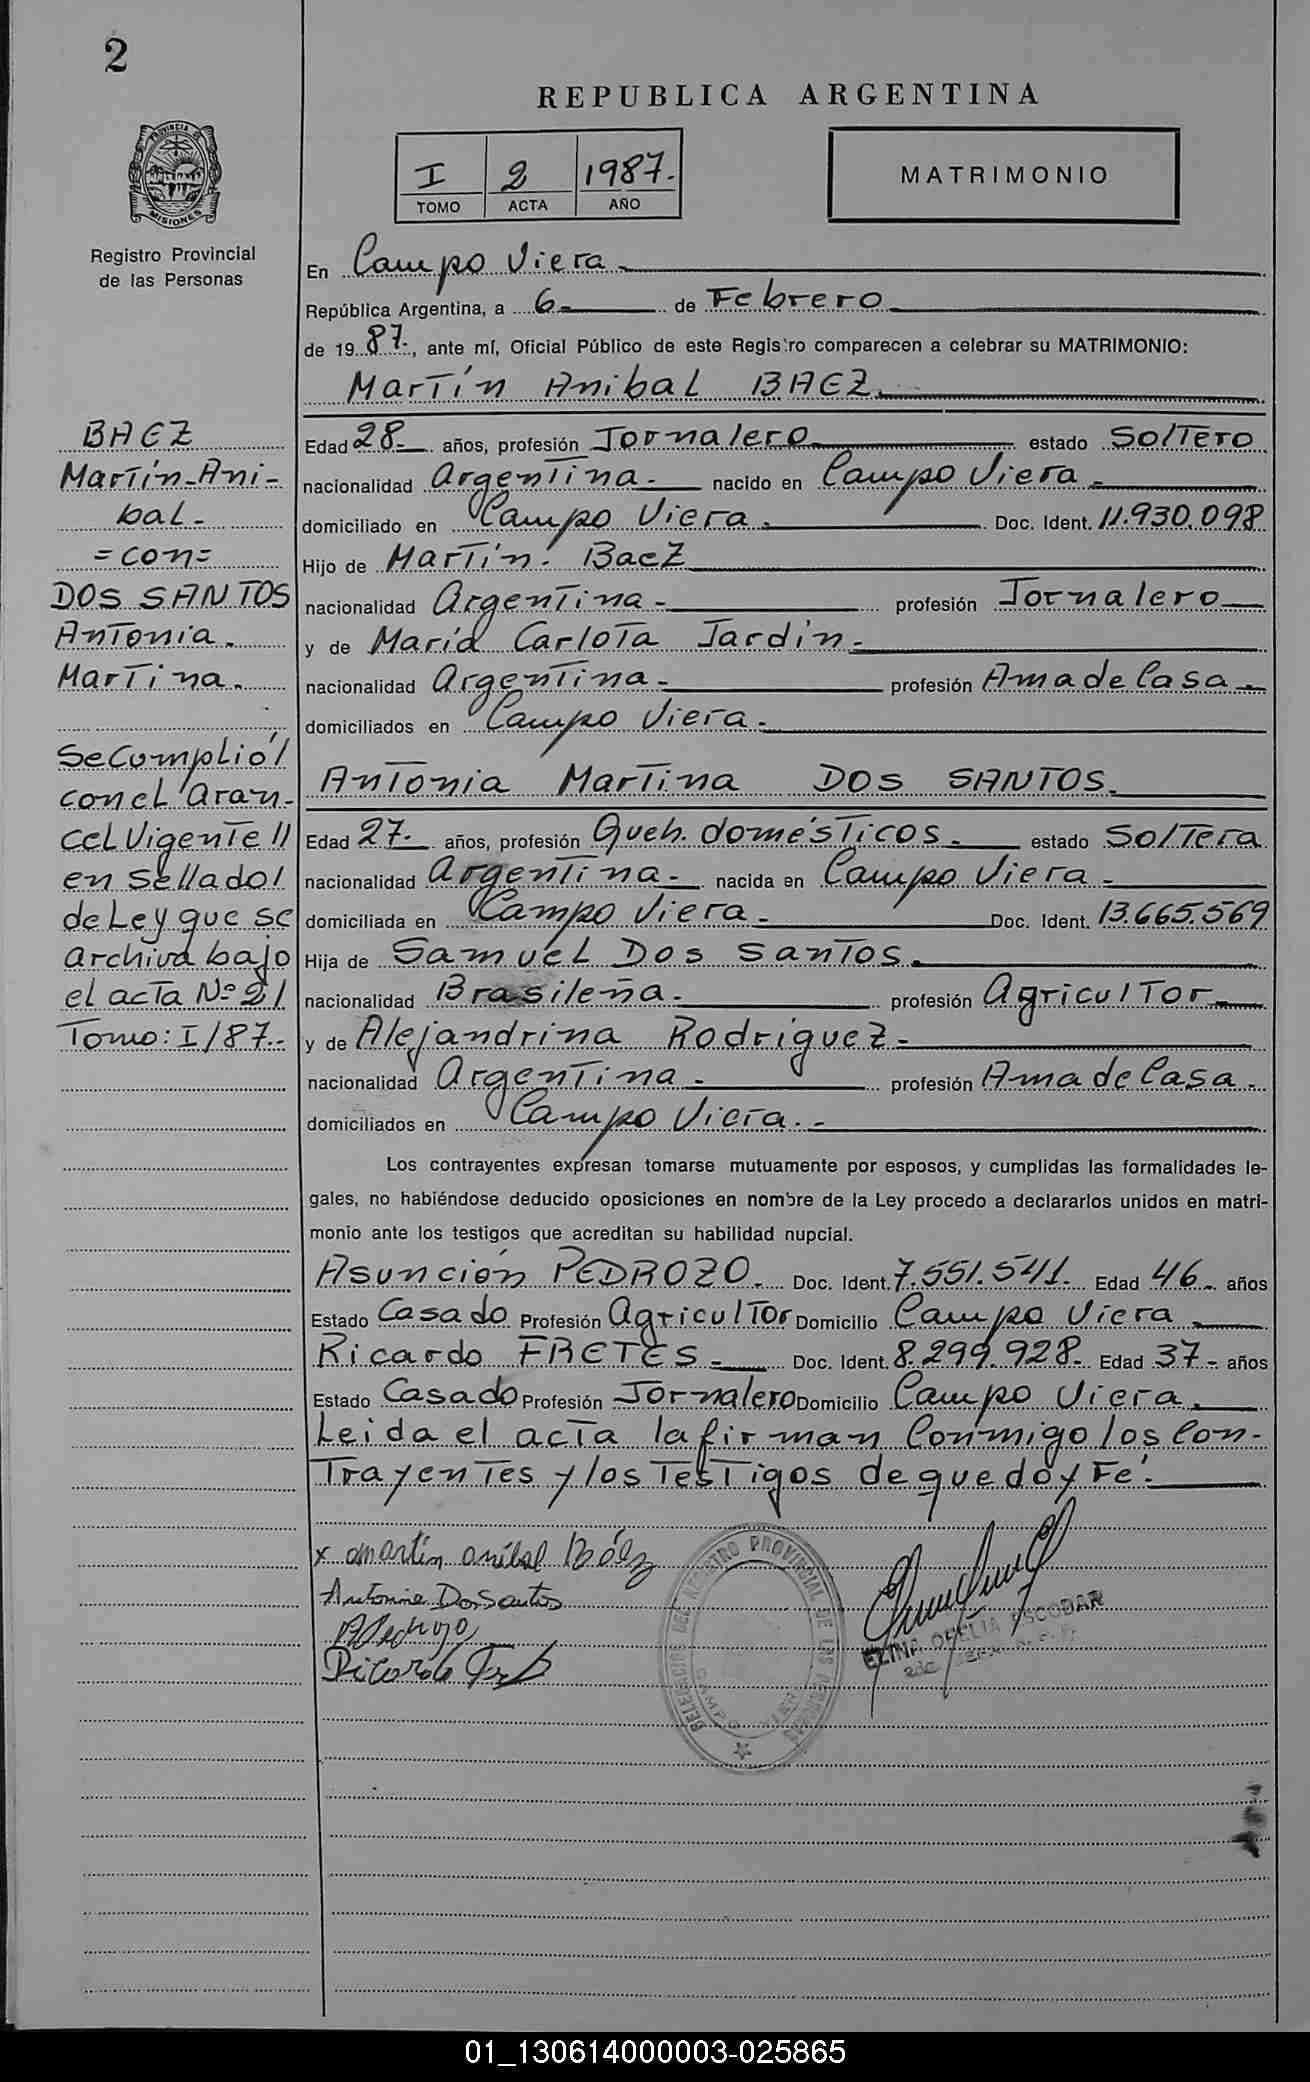 2
REPUBLICA ARGENTINA
I 2 1987.
TOMO ACTA AÑO
MATRIMONIO
PROVINCIA DE MISIONES
Registro Provincial
de las Personas
En Campo Viera.
República Argentina, a 6- de Febrero
de 1987., ante mí, Oficial Público de este Registro comparecen a celebrar su MATRIMONIO:
Martín Anibal BAEZ.
Edad 28.- años, profesión Jornalero estado Soltero
nacionalidad Argentina.- nacido en Campo Viera.
domiciliado en Campo Viera. Doc. Ident. 11.930.098
Hijo de Martín. Baez
nacionalidad Argentina.- profesión Jornalero
y de María Carlota Jardin.
nacionalidad Argentina.- profesión Ama de Casa.
domiciliados en Campo Viera.
Antonia Martina DOS SANTOS.
Edad 27.- años, profesión Queh. domésticos.- estado Soltera
nacionalidad Argentina.- nacida en Campo Viera.
domiciliada en Campo Viera. Doc. Ident. 13.665.569
Hija de Samuel Dos Santos.
nacionalidad Brasileña.- profesión Agricultor
y de Alejandrina Rodriguez.-
nacionalidad Argentina.- profesión Ama de Casa.
domiciliados en Campo Viera.-
Los contrayentes expresan tomarse mutuamente por esposos, y cumplidas las formalidades le-
gales, no habiéndose deducido oposiciones en nombre de la Ley procedo a declararlos unidos en matri-
monio ante los testigos que acreditan su habilidad nupcial.
Asunción PEDROZO. Doc. Ident. 7.551.541. Edad 46.- años
Estado Casado Profesión Agricultor Domicilio Campo Viera
Ricardo FRETES.- Doc. Ident. 8.299.928.- Edad 37- años
Estado Casado Profesión Jornalero Domicilio Campo Viera.
Leida el acta la firman Conmigo los Con-
trayentes y los Testigos de que doy Fe.
x Martín Aníbal Báez
Antonina Dos Santos
APedrozo
Ricardo
DELEGACION DEL REGISTRO PROVINCIAL DE LAS PERSONAS
CAMPO VIERA
ELINA OFELIA ESCOBAR
BAEZ
Martín-Ani-
bal-
=con=
DOS SANTOS
Antonia.
Martina.
Se Cumplió/
con el aran-
cel Vigente//
en Sellado/
de Ley que se
archiva bajo
el acta Nº 2/
Tomo: I/87.-
01_130614000003-025865